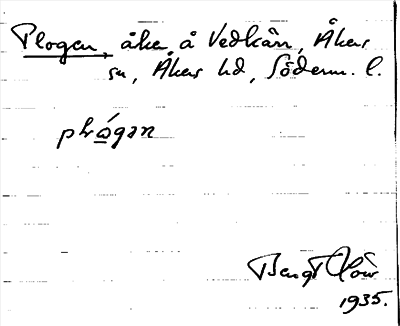 Plogen, åker å Vedkärn, Åkers
sn, Åkers hd, Söderm. l.
plógan
Bengt Löw
1935.